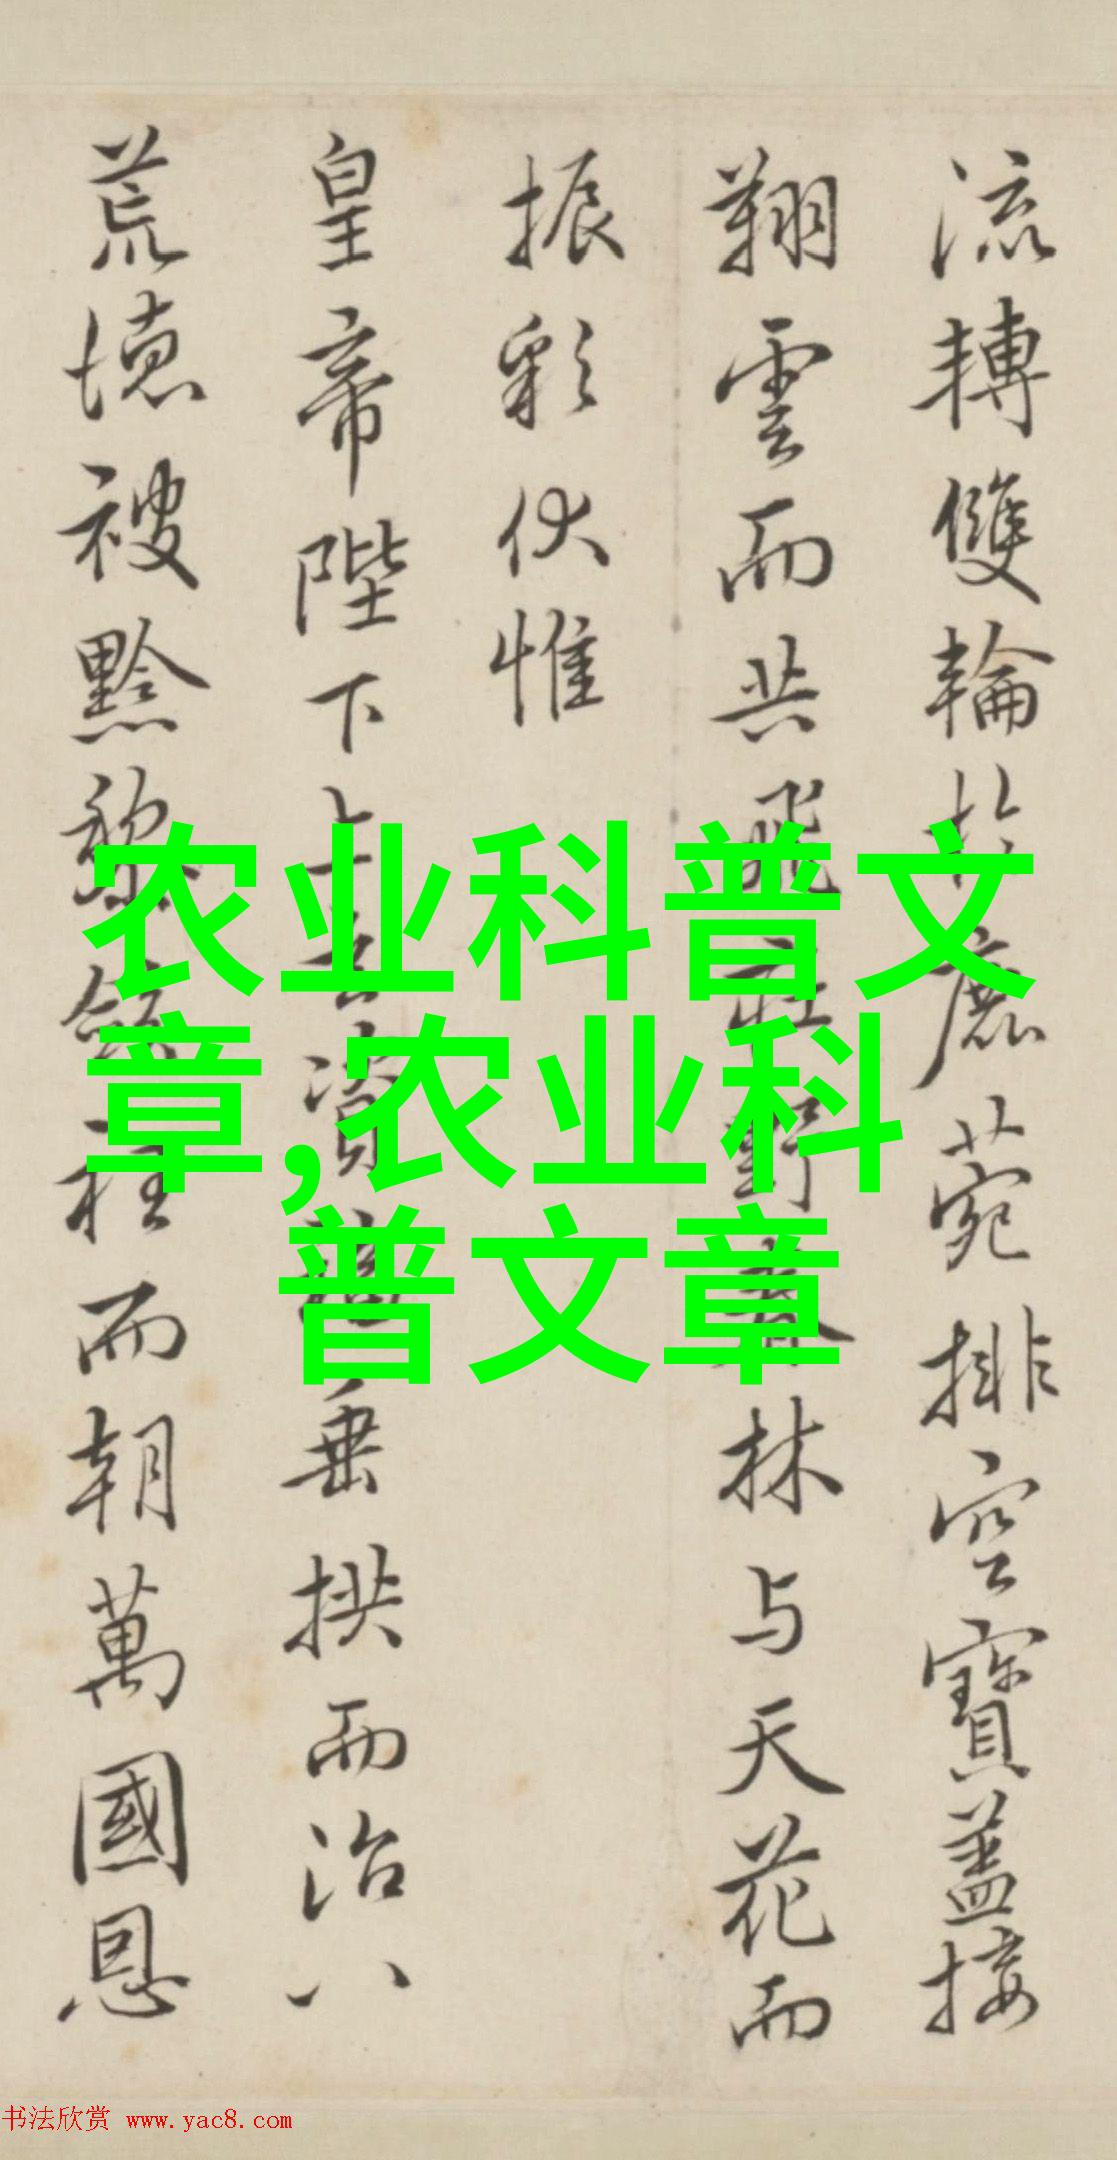 流轉雙輪於鹿菀排空寶蓋接
翔雲而共飛莊野春林与天花而
振彩伏惟
皇帝陛下上玄資福垂拱而治八
荒德被黔黎斂衽而朝萬國恩
农业科普文
章,农业科
普文章
书法欣赏 www.yac8.com